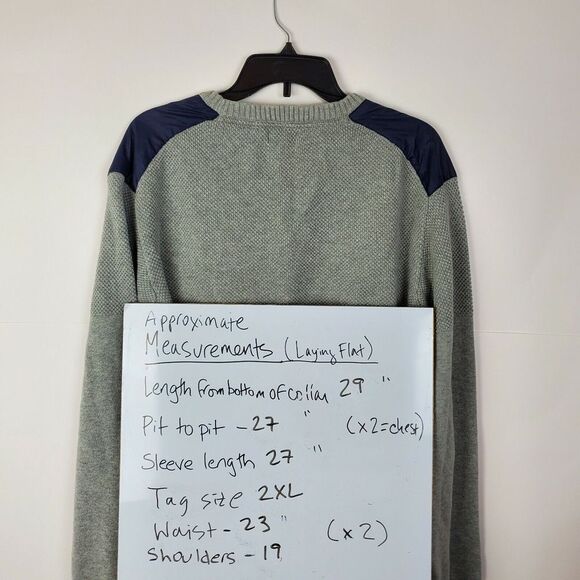 Approximate
Measurements (Laying Flat)
Length from bottom of collar 29 "
Pit to pit - 27 " (x2=chest)
Sleeve length 27 "
Tag size 2XL
Waist - 23 " (x2)
Shoulders - 19